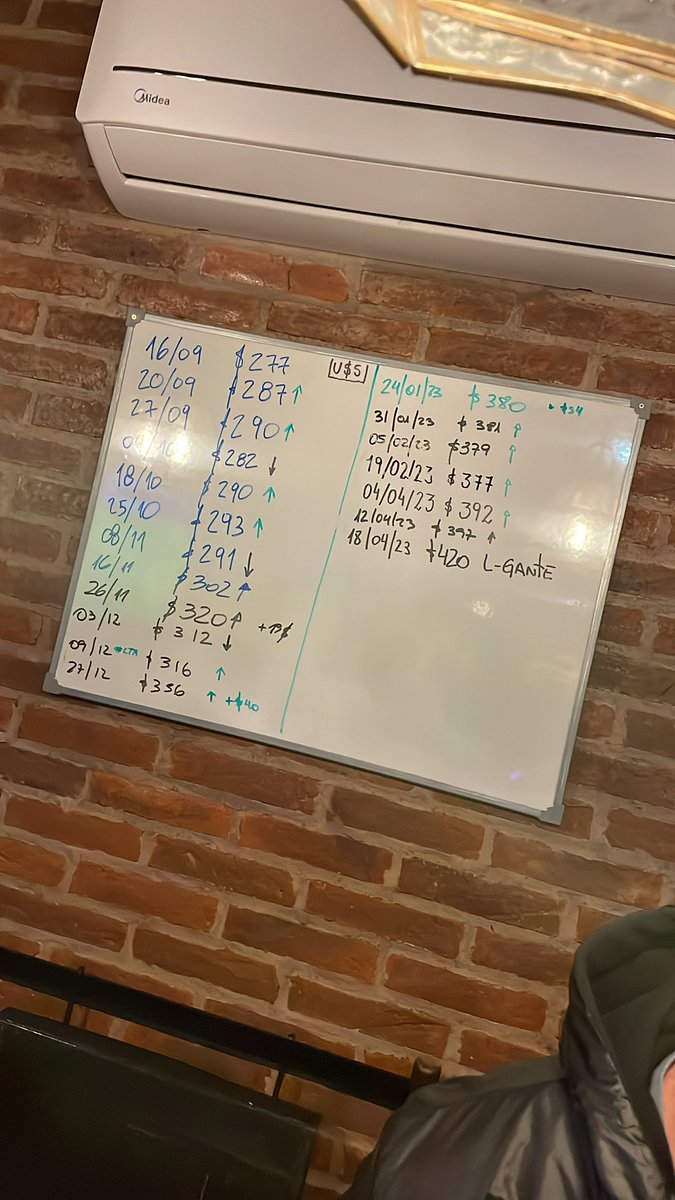 Midea
16/09 $277
20/09 $287 ↑
27/09 $290 ↑
$282 ↓
18/10 $290 ↑
25/10 $293 ↑
08/11 $291 ↓
16/11 $302 ↑
26/11 $320 ↑ +
03/12 $312 ↓
09/12 $316 ↑
27/12 $356 ↑ +$40
U$S
24/01/23 $380
31/01/23 $381 ↑
05/02/23 $379 ↑
19/02/23 $377 ↑
04/04/23 $392 ↑
12/04/23 $397 ↑
18/04/23 $420 L-GANTE